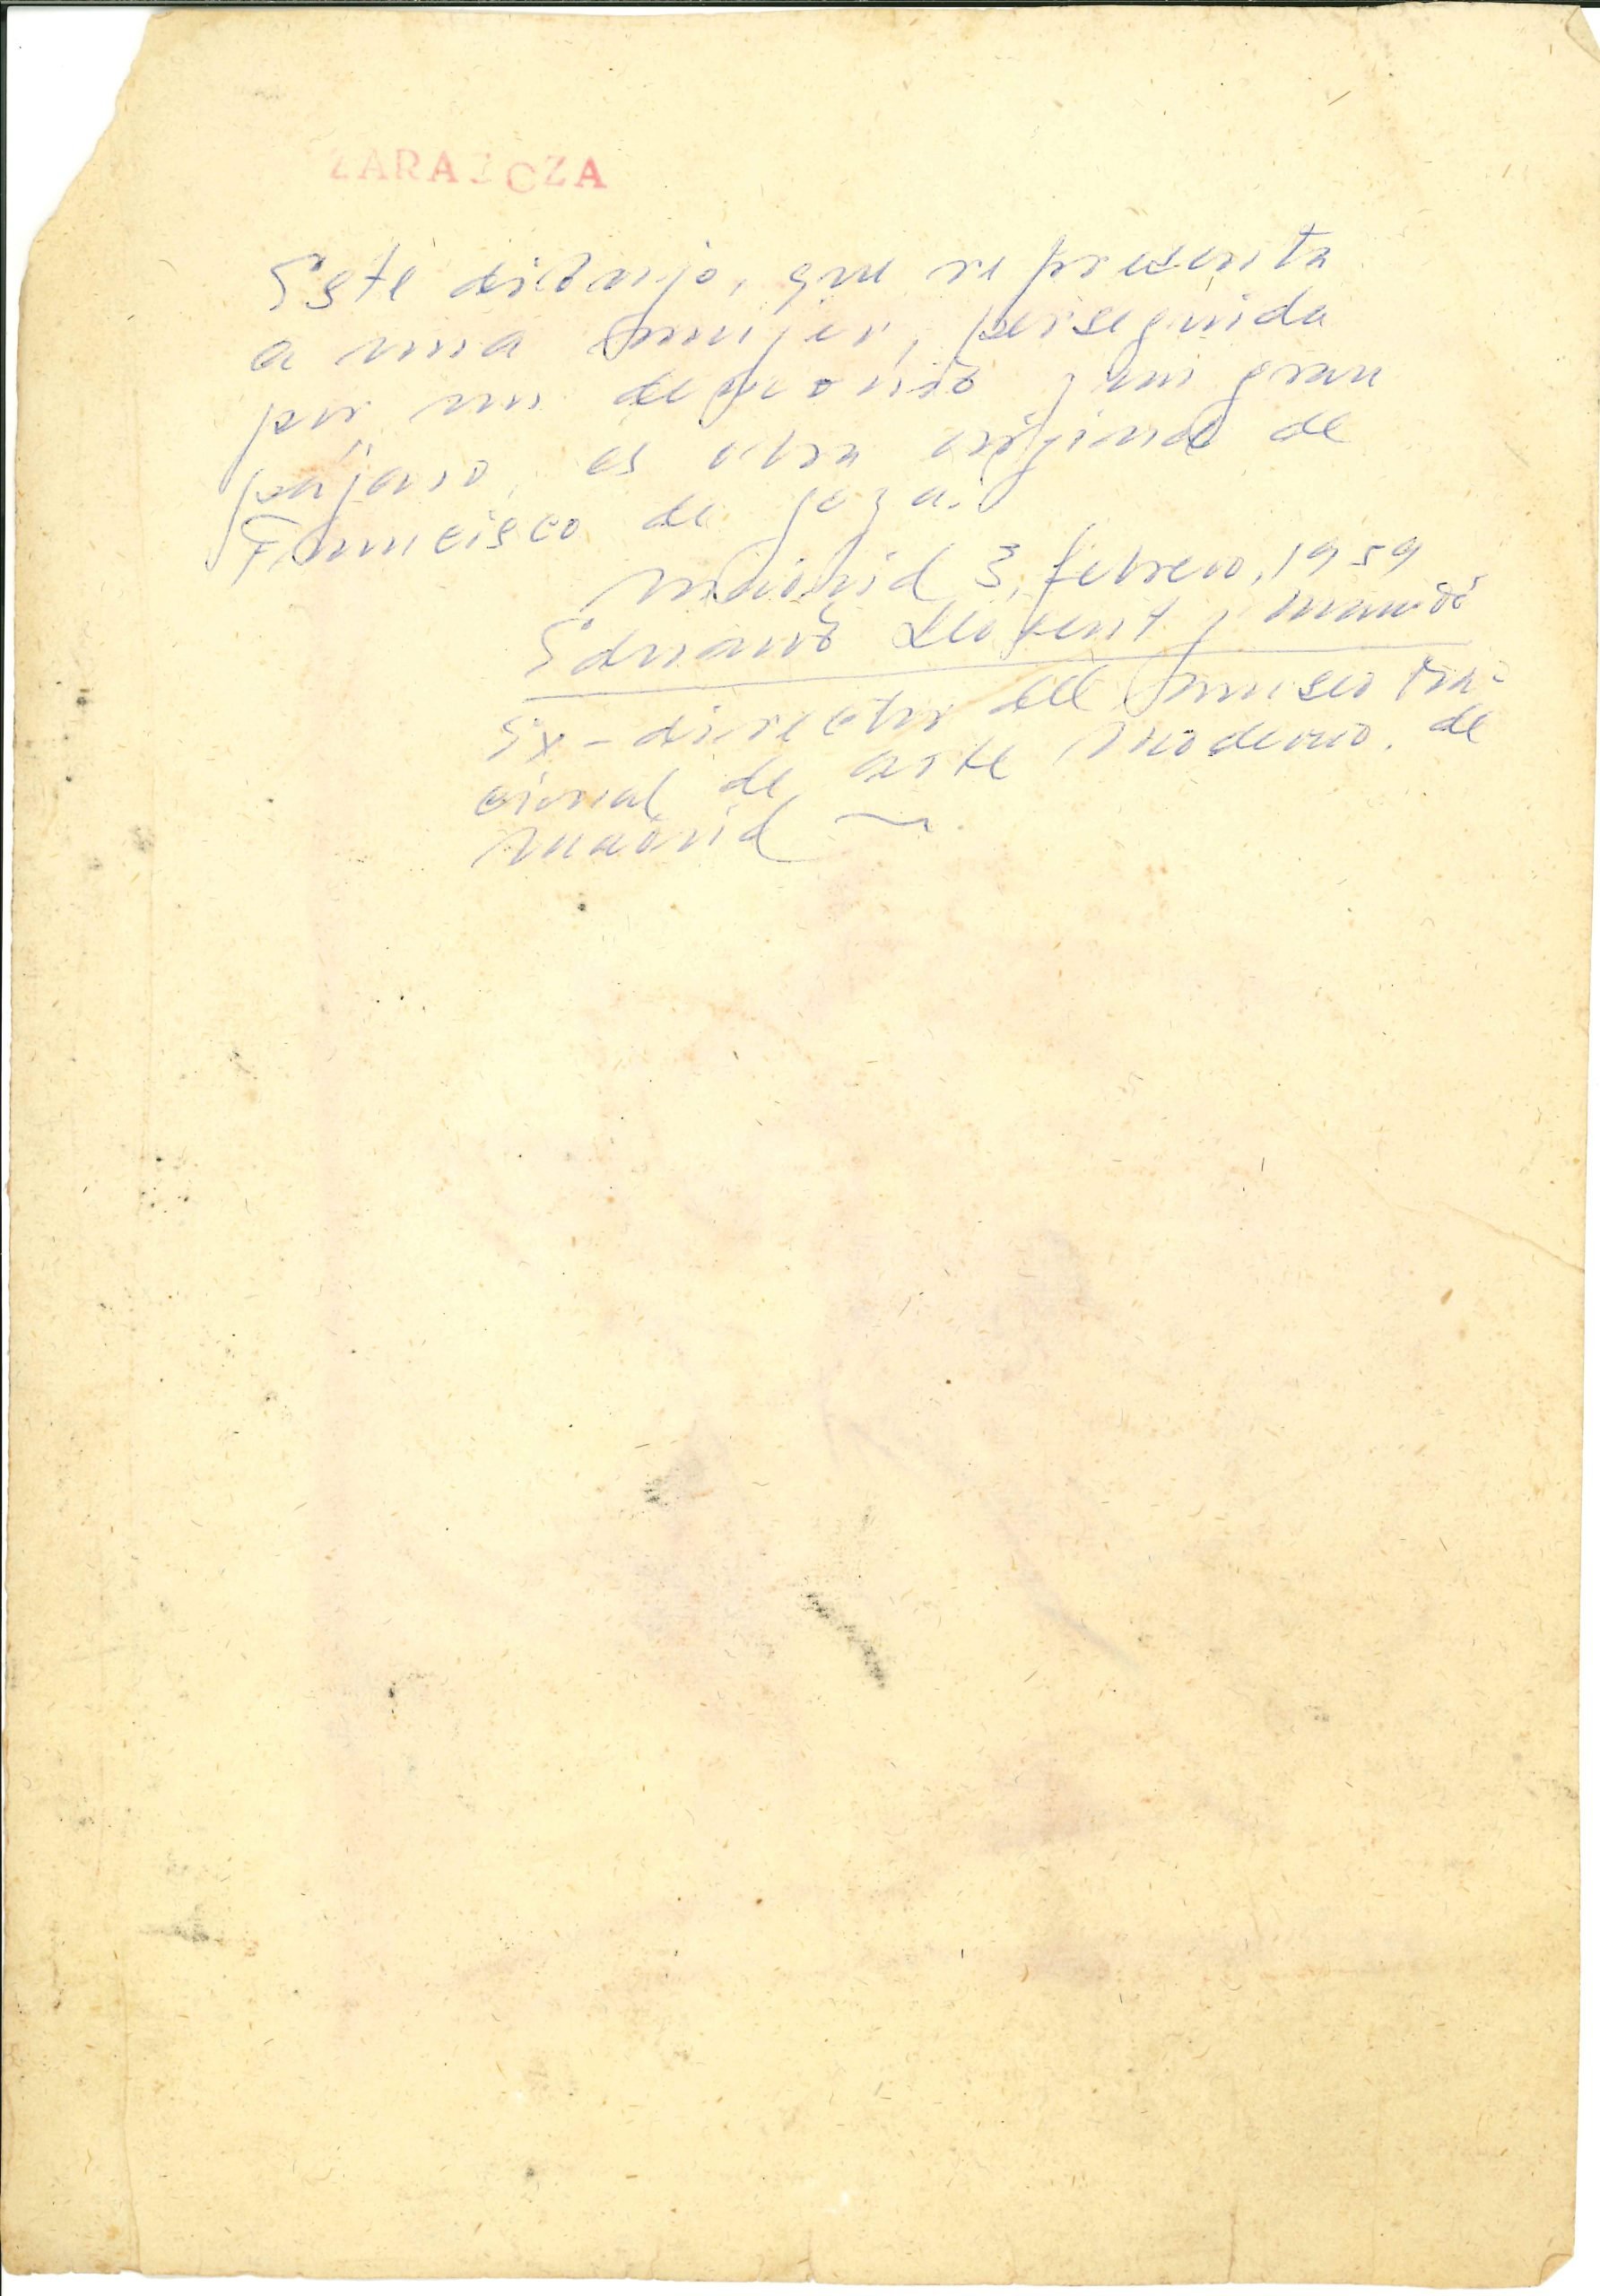 ZARAGOZA
Este dibujo, que representa
a una mujer, perseguida
por un demonio y un gran
pájaro, es obra original de
Francisco de Goya.
Madrid 3, febrero, 1959
Eduardo Llosent y Marañón
Ex-director del Museo Na-
cional de Arte Moderno. de
Madrid